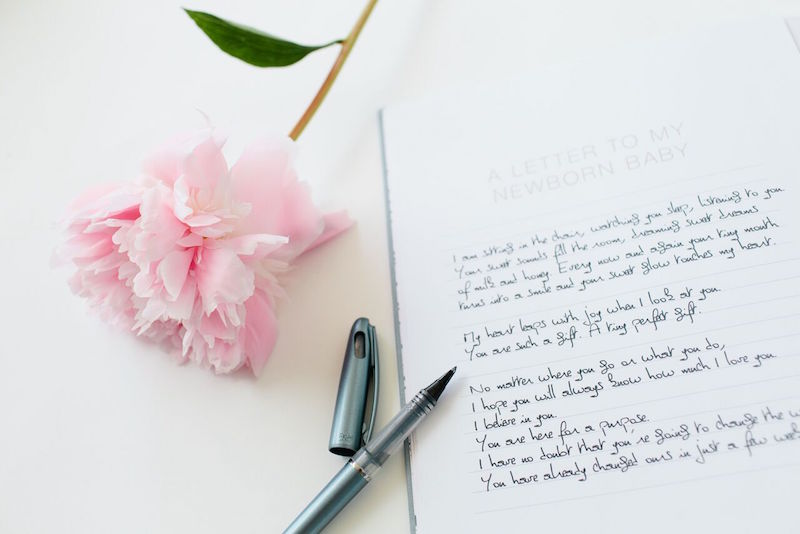 A LETTER TO MY
NEWBORN BABY
I am sitting in the chair, watching you sleep, listening to you.
Your sweet sounds fill the room, dreaming sweet dreams
of milk and honey. Every now and again your tiny mouth
turns into a smile and your sweet glow touches my heart.
My heart leaps with joy when I look at you.
You are such a gift. A tiny perfect gift.
No matter where you go or what you do,
I hope you will always know how much I love you.
I believe in you.
You are here for a purpose.
I have no doubt that you're going to change the w
You have already changed ours in just a few